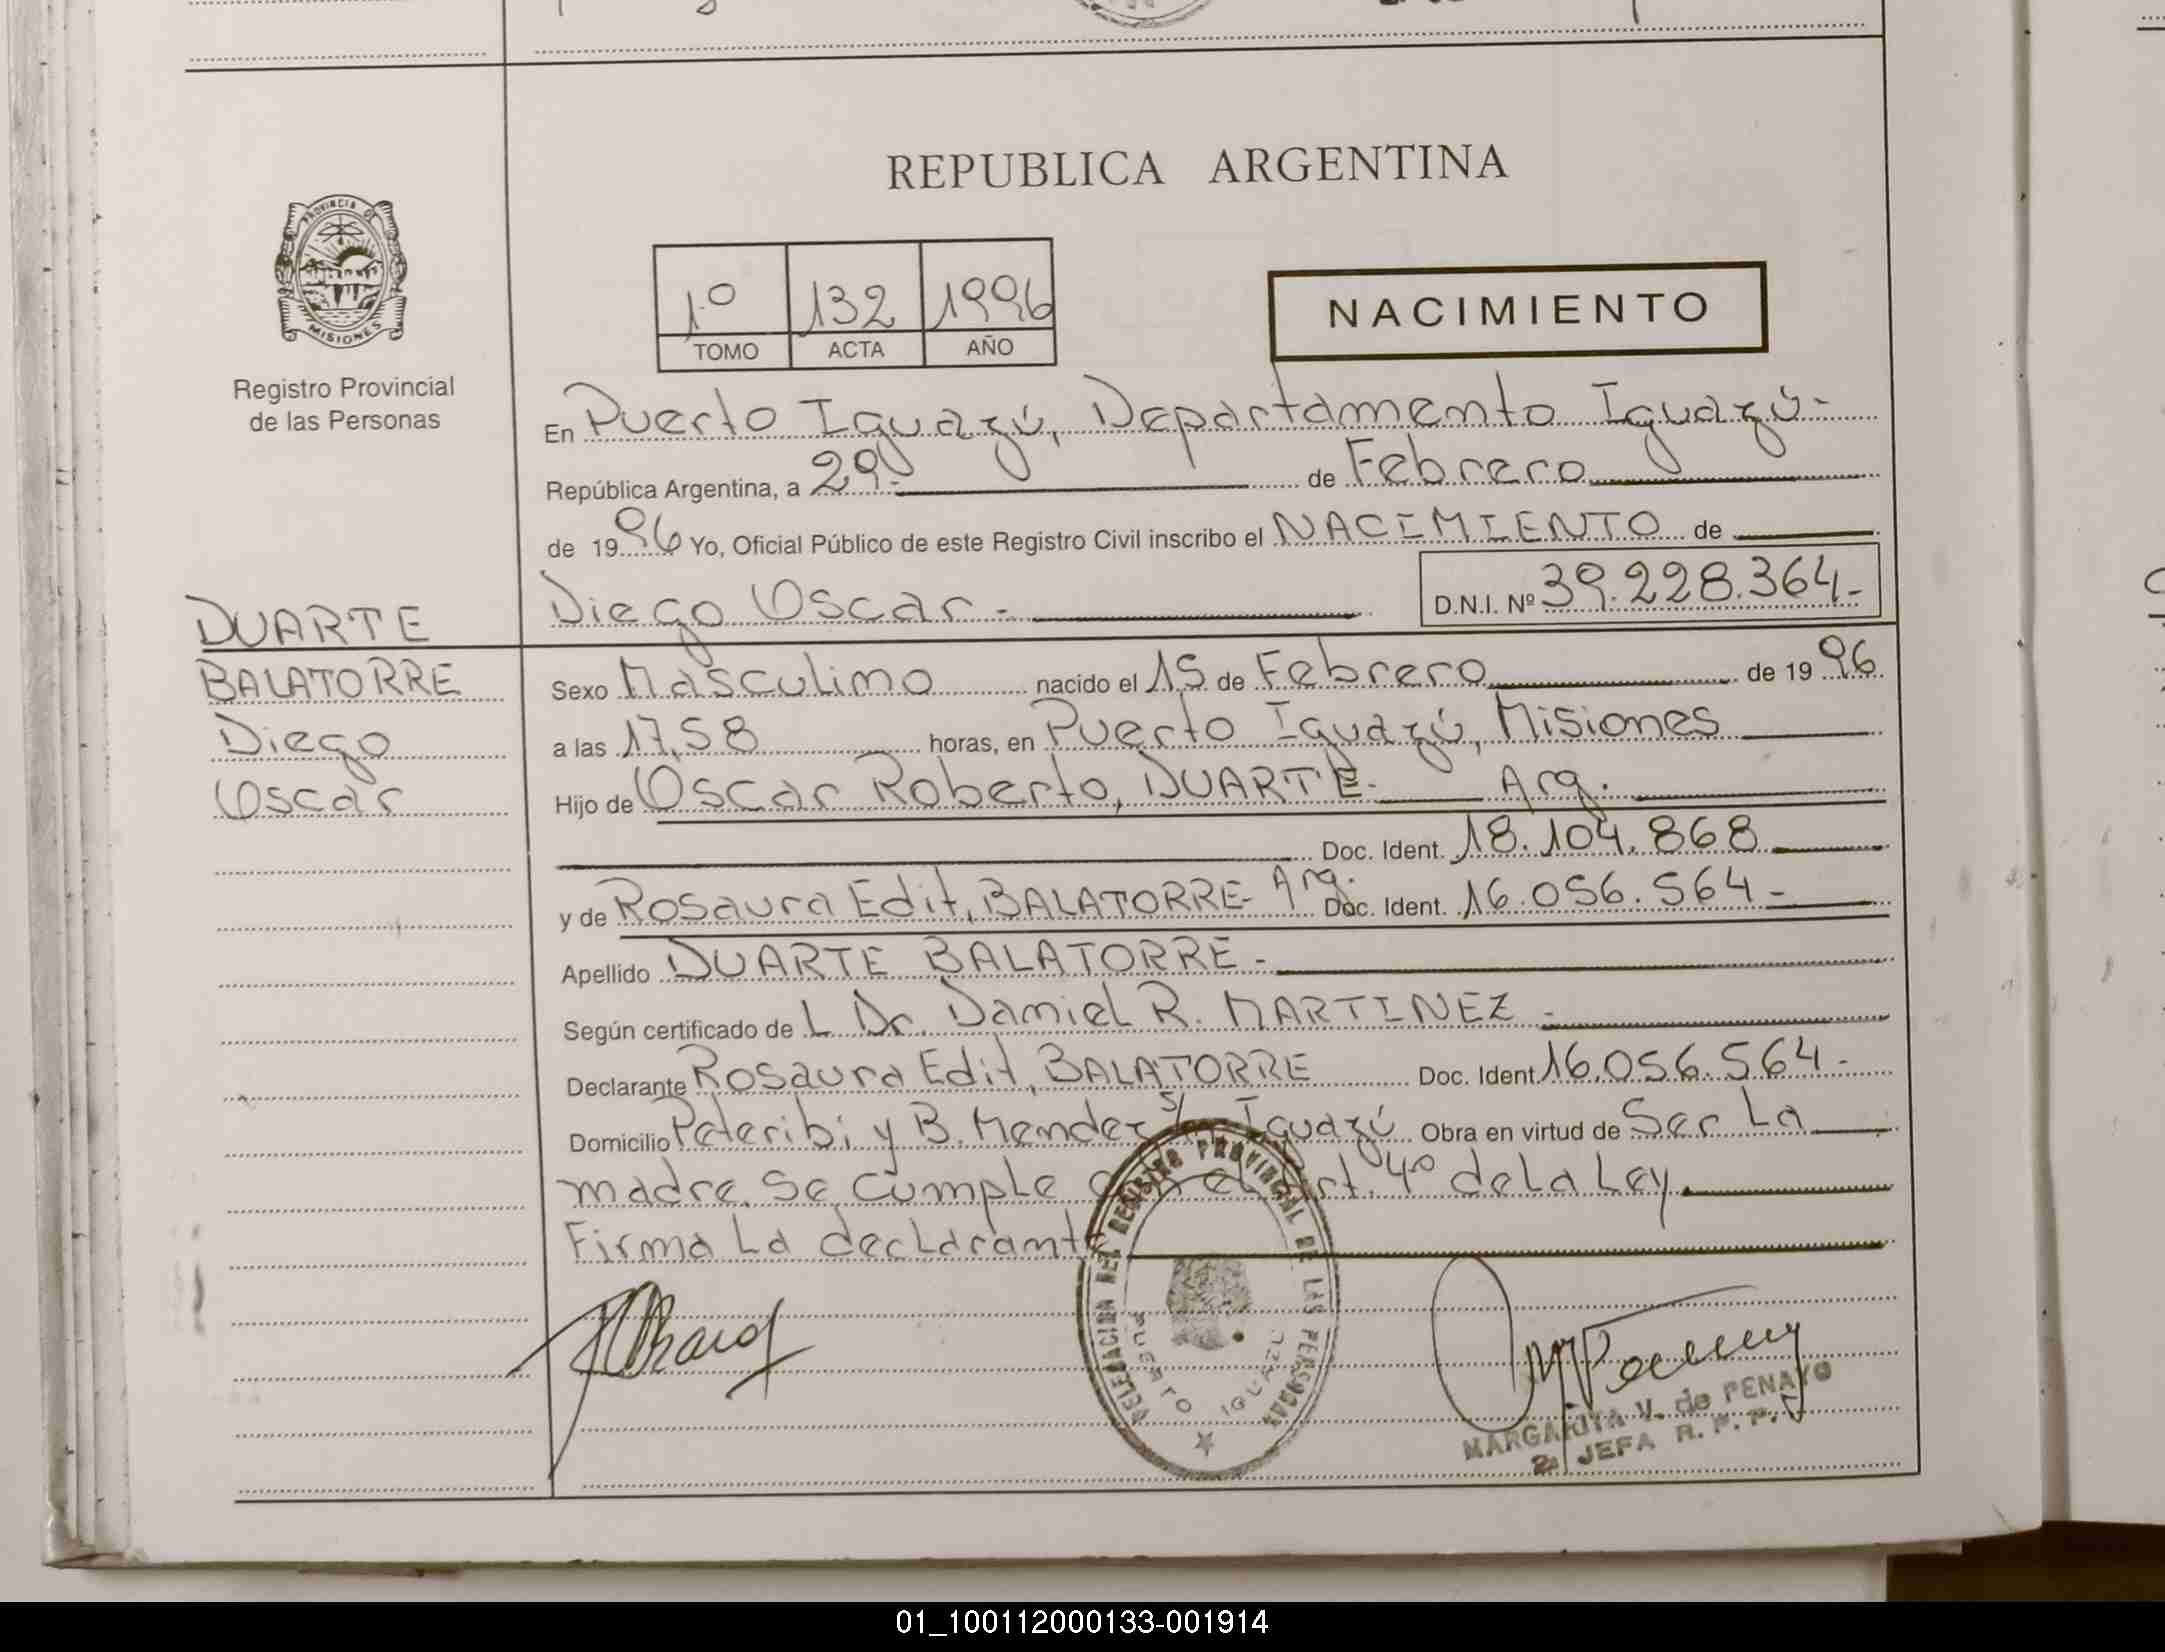 REPUBLICA ARGENTINA
PROVINCIA DE
MISIONES
Registro Provincial
de las Personas
1º 132 1996
TOMO ACTA AÑO
NACIMIENTO
En Puerto Iguazú, Departamento Iguazú-
República Argentina, a 29.- de Febrero
de 1996 Yo, Oficial Público de este Registro Civil inscribo el NACIMIENTO de
Diego Oscar.- D.N.I. Nº 39.228.364-
DUARTE
BALATORRE
Diego
Oscar
Sexo Masculino nacido el 15 de Febrero de 1996
a las 17,58 horas, en Puerto Iguazú, Misiones
Hijo de Oscar Roberto, DUARTE- Arg.
Doc. Ident. 18.104.868
y de Rosaura Edit, BALATORRE- Arg. Doc. Ident. 16.056.564-
Apellido DUARTE BALATORRE-
Según certificado de L Dr. Daniel R. MARTINEZ-
Declarante Rosaura Edit, BALATORRE Doc. Ident. 16.056.564-
Domicilio Peteribi y B. Mendez s/n Iguazú Obra en virtud de Ser La
madre. Se cumple con el Art. 4º de la Ley.
Firma La declarante
DELEGACION DEL REGISTRO PROVINCIAL DE LAS PERSONAS
PUERTO IGUAZU
MARGARITA V. de PENAYO
2ª JEFA R. P. P.
01_100112000133-001914